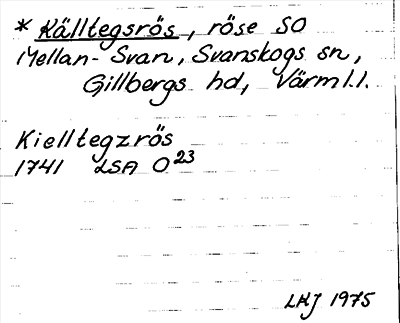 * Källtegsrös, röse SO
Mellan-Svan, Svanskogs sn,
Gillbergs hd, Värml.l.
Kielltegzrös
1741 LSA O23
LHJ 1975